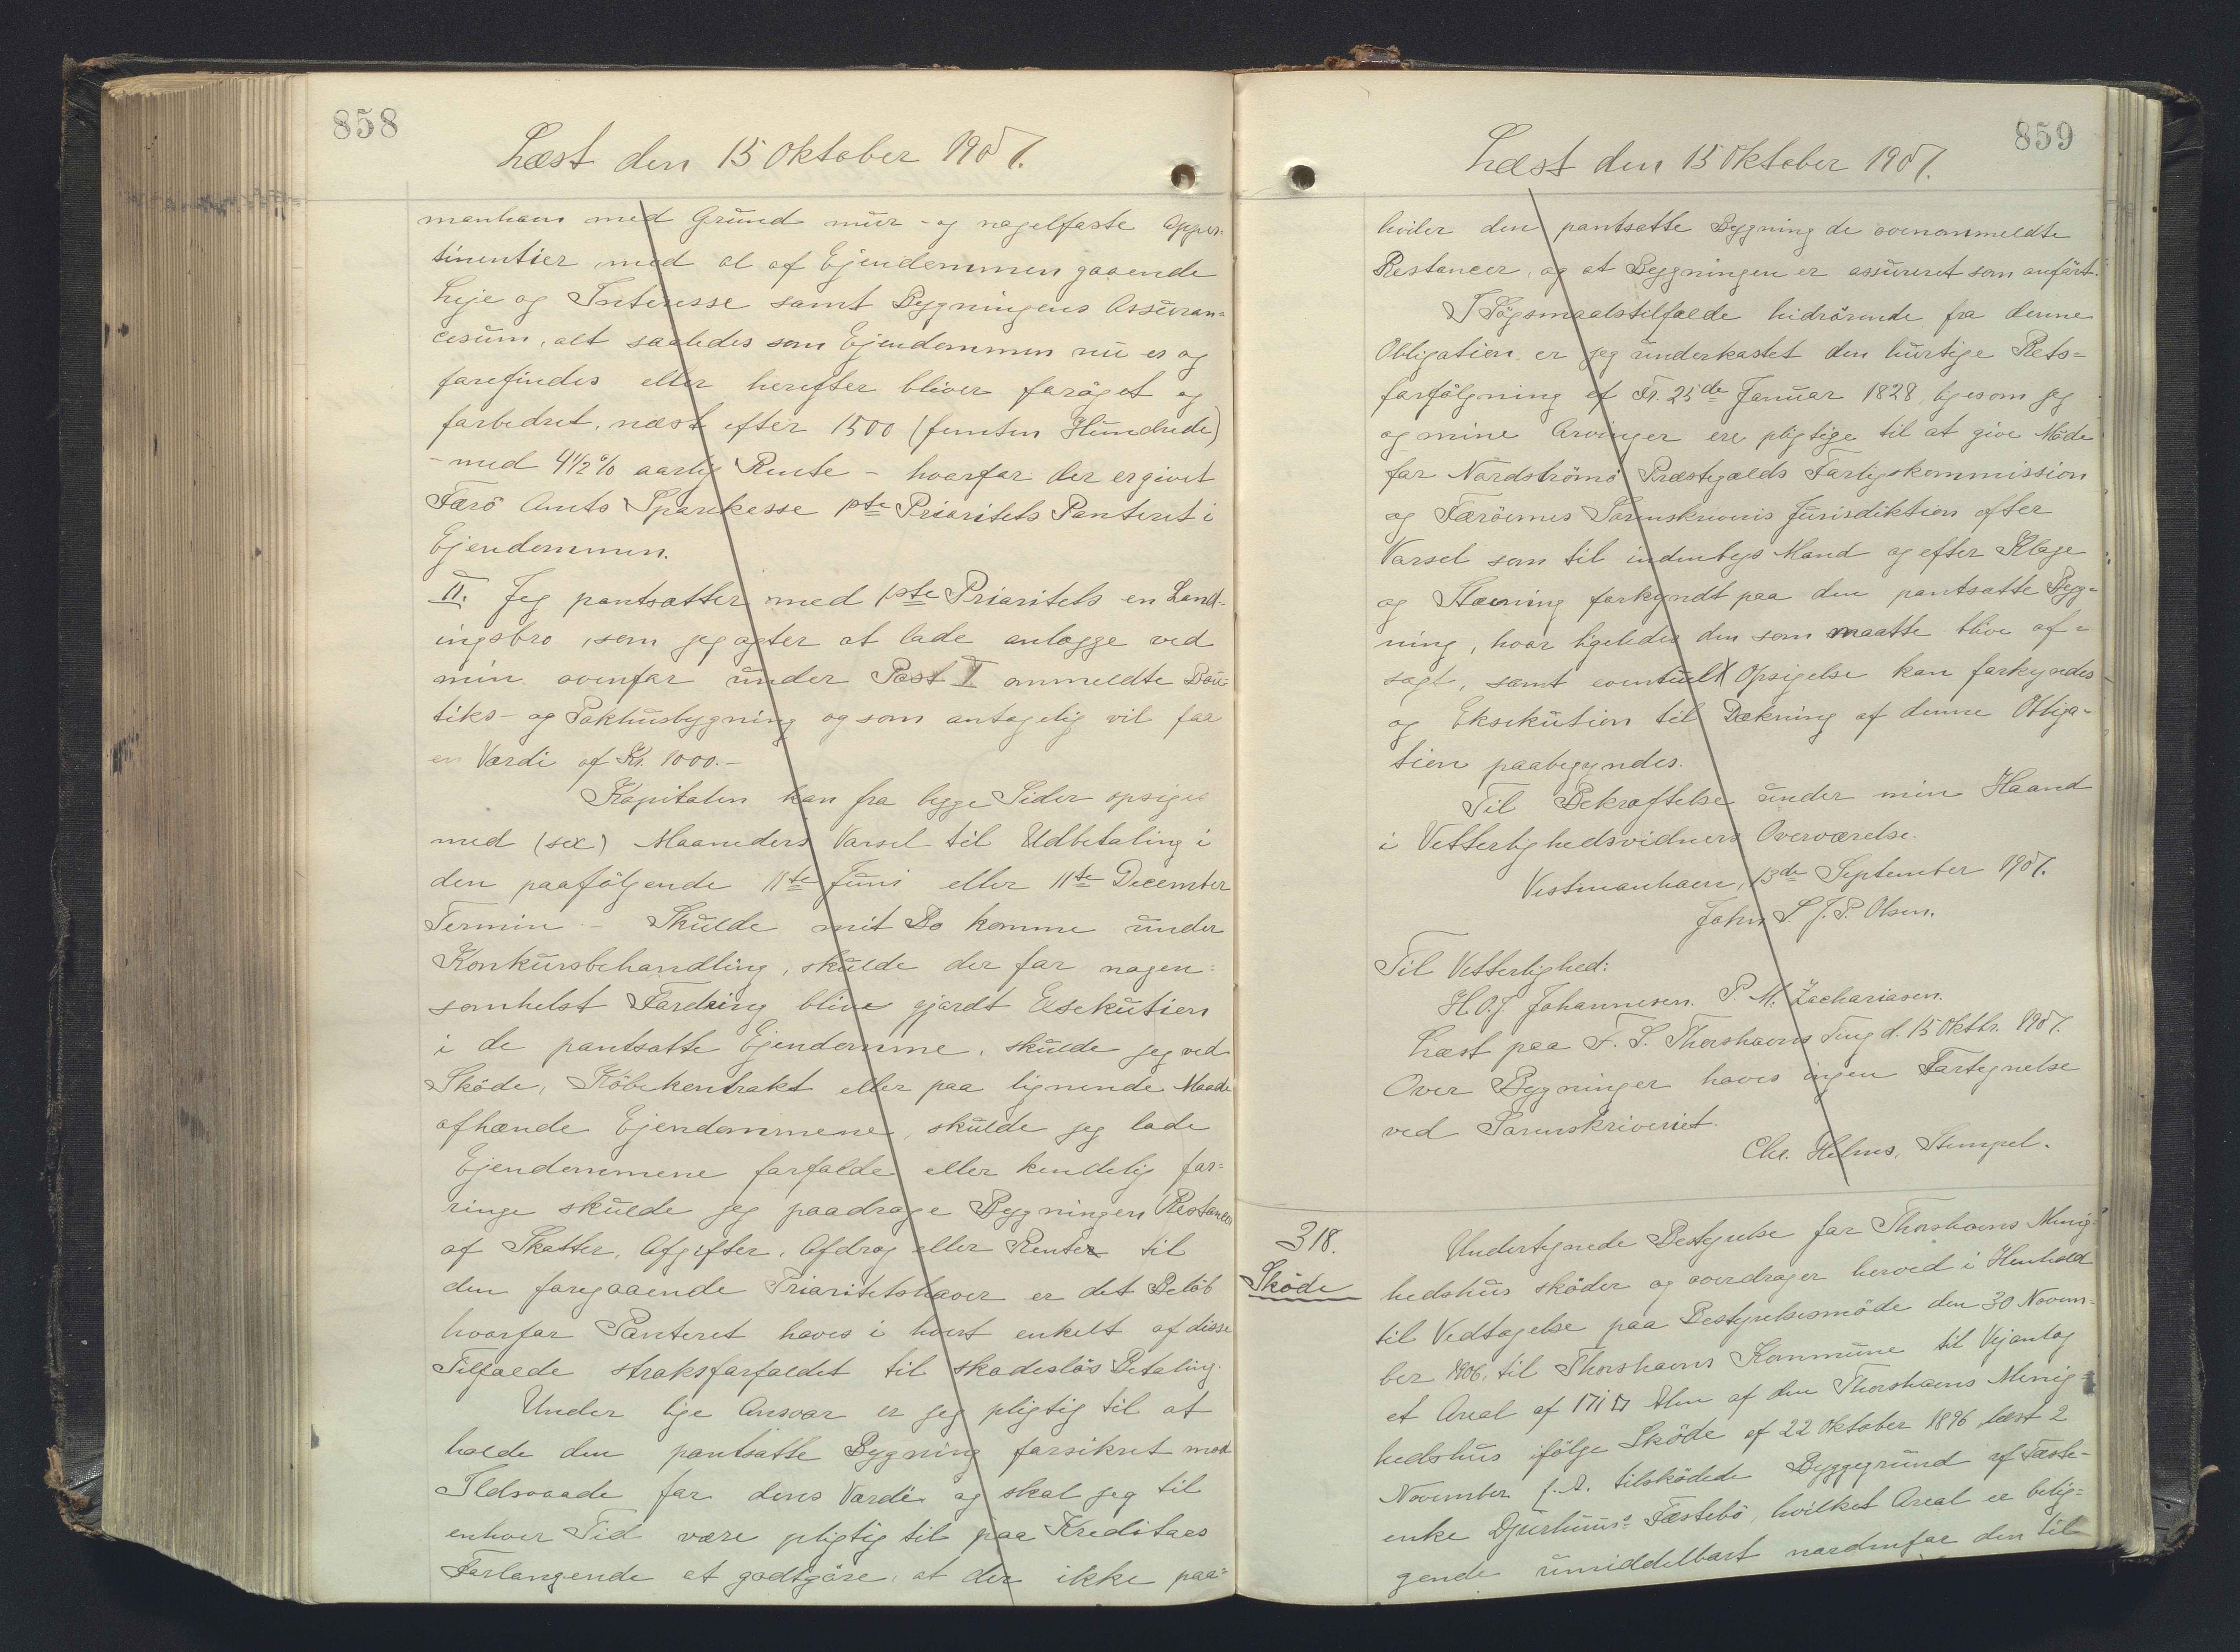 858
Læst den 15 Oktober 1907.
manhavn med Grund mur- og nagelfaste Apper-
tinentier, med al af Ejendommen gaaende
Leje og Interesse samt Bygningens Assuran-
cesum, alt saaledes som Ejendommen nu er og
forefindes eller herefter bliver forøget og
forbedret, næst efter 1500 (femten Hundrede)
- med 4½% aarlig Rente - hvorfor der er givet
Færö Amts Sparekasse 1ste Prioritets Panteret i
Ejendommen.
II. Jeg pantsætter med 1ste Prioritets en Land-
ingsbro, som jeg agter at lade anlægge ved
min ovenfor under Post I ommeldte Bou-
tiks- og Pakhusbygning og som antagelig vil faa
en Værdi af Kr. 1000.-
Kapitalen kan fra begge Sider opsiges
med (sex) Maaneders Varsel til Udbetaling i
den paafölgende 11te Juni eller 11te December
Termin - Skulde mit Bo komme under
Konkursbehandling, skulde der for nogen-
somhelst Fordring blive gjordt Exekution
i de pantsatte Ejendomme, skulde jeg ved
Sköde, Köbekontrakt eller paa lignende Maade
afhænde Ejendommene, skulde jeg lade
Ejendommene forfalde eller kendelig for-
ringe skulde jeg paadrage Bygningen Restancer
af Skatter, Afgifter, Afdrag eller Renter til
den foregaaende Prioritetshaver er det Belöb
hvorfor Panteret haves i hvert enkelt af disse
Tilfælde straksforfaldet til skadeslös Betaling.
Under lige Ansvar er jeg pligtig til at
holde den pantsatte Bygning forsikret mod
Ildsvaade for dens Værdi og skal jeg til
enhver Tid være pligtig til paa Kreditors
Forlangende at godtgöre, at der ikke paa-
859
Læst den 15 Oktober 1907.
hviler den pantsatte Bygning de ovenommeldte
Restancer, og at Bygningen er assureret som anfört.
I Sögsmaalstilfælde hidrörende fra denne
Obligation er jeg underkastet den hurtige Rets-
forfölgning ef Fr. 25de Januar 1828, ligesom jeg
og mine Arvinger ere pligtige til at give Möde
for Nordströmö Præstegælds Forligskommission
og Færöernes Sorenskriveris Jurisdiktion efter
Varsel som til indenbys Mand og efter Klage
og Stævning forkyndt paa den pantsatte Byg-
ning, hvor ligeledes den som maatte blive af-
sagt, samt eventuelt Opsigelse kan forkyndes
og Eksekution til Dækning af denne Obliga-
tion paabegyndes.
Til Bekræftelse under min Haand
i Vetterlighedsvidners Overværelse.
Vestmanhavn, 13de September 1907.
John S. J. P. Olsen.
Til Vetterlighed:
H. O. J. Johannesen. P. M. Zachariasen.
Læst paa F. S. Thorshavns Ting d. 15 Oktbr. 1907.
Over Bygninger haves ingen Fortegnelse
ved Sorenskriveriet.
Chr. Helms, Stempel.
318.
Sköde
Undertegnede Bestyrelse for Thorshavns Menig-
hedshus sköder og overdrager herved i Henhold
til Vedtagelse paa Bestyrelsesmöde den 30 Novem-
ber 1906, til Thorshavns Kommune til Vejanlag
et Areal af 171 □ Alen af den Thorshavns Menig-
hedshus ifölge Sköde af 22 Oktober 1896 læst 2
November f. A. tilsködede Byggegrund af Fæste-
enke Djurhuus' Fæstebö, hvilket Areal er belig-
gende umiddelbart nordenfor den til